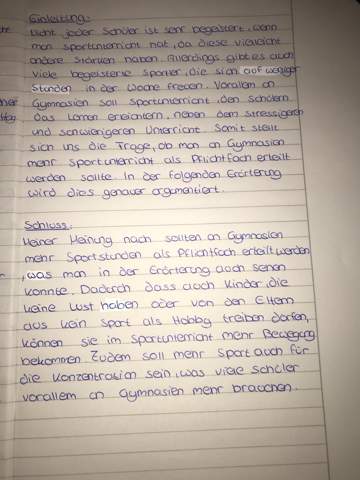 Einleitung:
Nicht jeder Schüler ist sehr begeistert, wenn
man sportunterricht hat, da diese vielleicht
andere Stärken haben. Allerdings gibt es auch
viele begeisterte Sportler, die sich auf weniger
Stunden in der Woche freuen. Vorallem an
Gymnasien soll Sportunterricht, den Schülern
das Lernen erleichtern, neben dem stressigeren
und schwierigeren Unterricht. Somit stellt
sich uns die Frage, ob man an Gymnasien
mehr Sportunterricht als Pflichtfach erteilt
werden sollte. In der folgenden Erörterung
wird dies genauer argumentiert.
Schluss:
Meiner Meinung nach sollten an Gymnasien
mehr Sportstunden als Pflichtfach erteilt werden
, was man in der Erörterung auch sehen
konnte. Dadurch dass auch Kinder, die
keine Lust haben oder von den Eltern
aus kein Sport als Hobby treiben dürfen,
können sie im Sportunterricht mehr Bewegung
bekommen. Zudem soll mehr Sport auch für
die Konzentration sein, was viele schüler
vorallem an Gymnasien mehr brauchen.